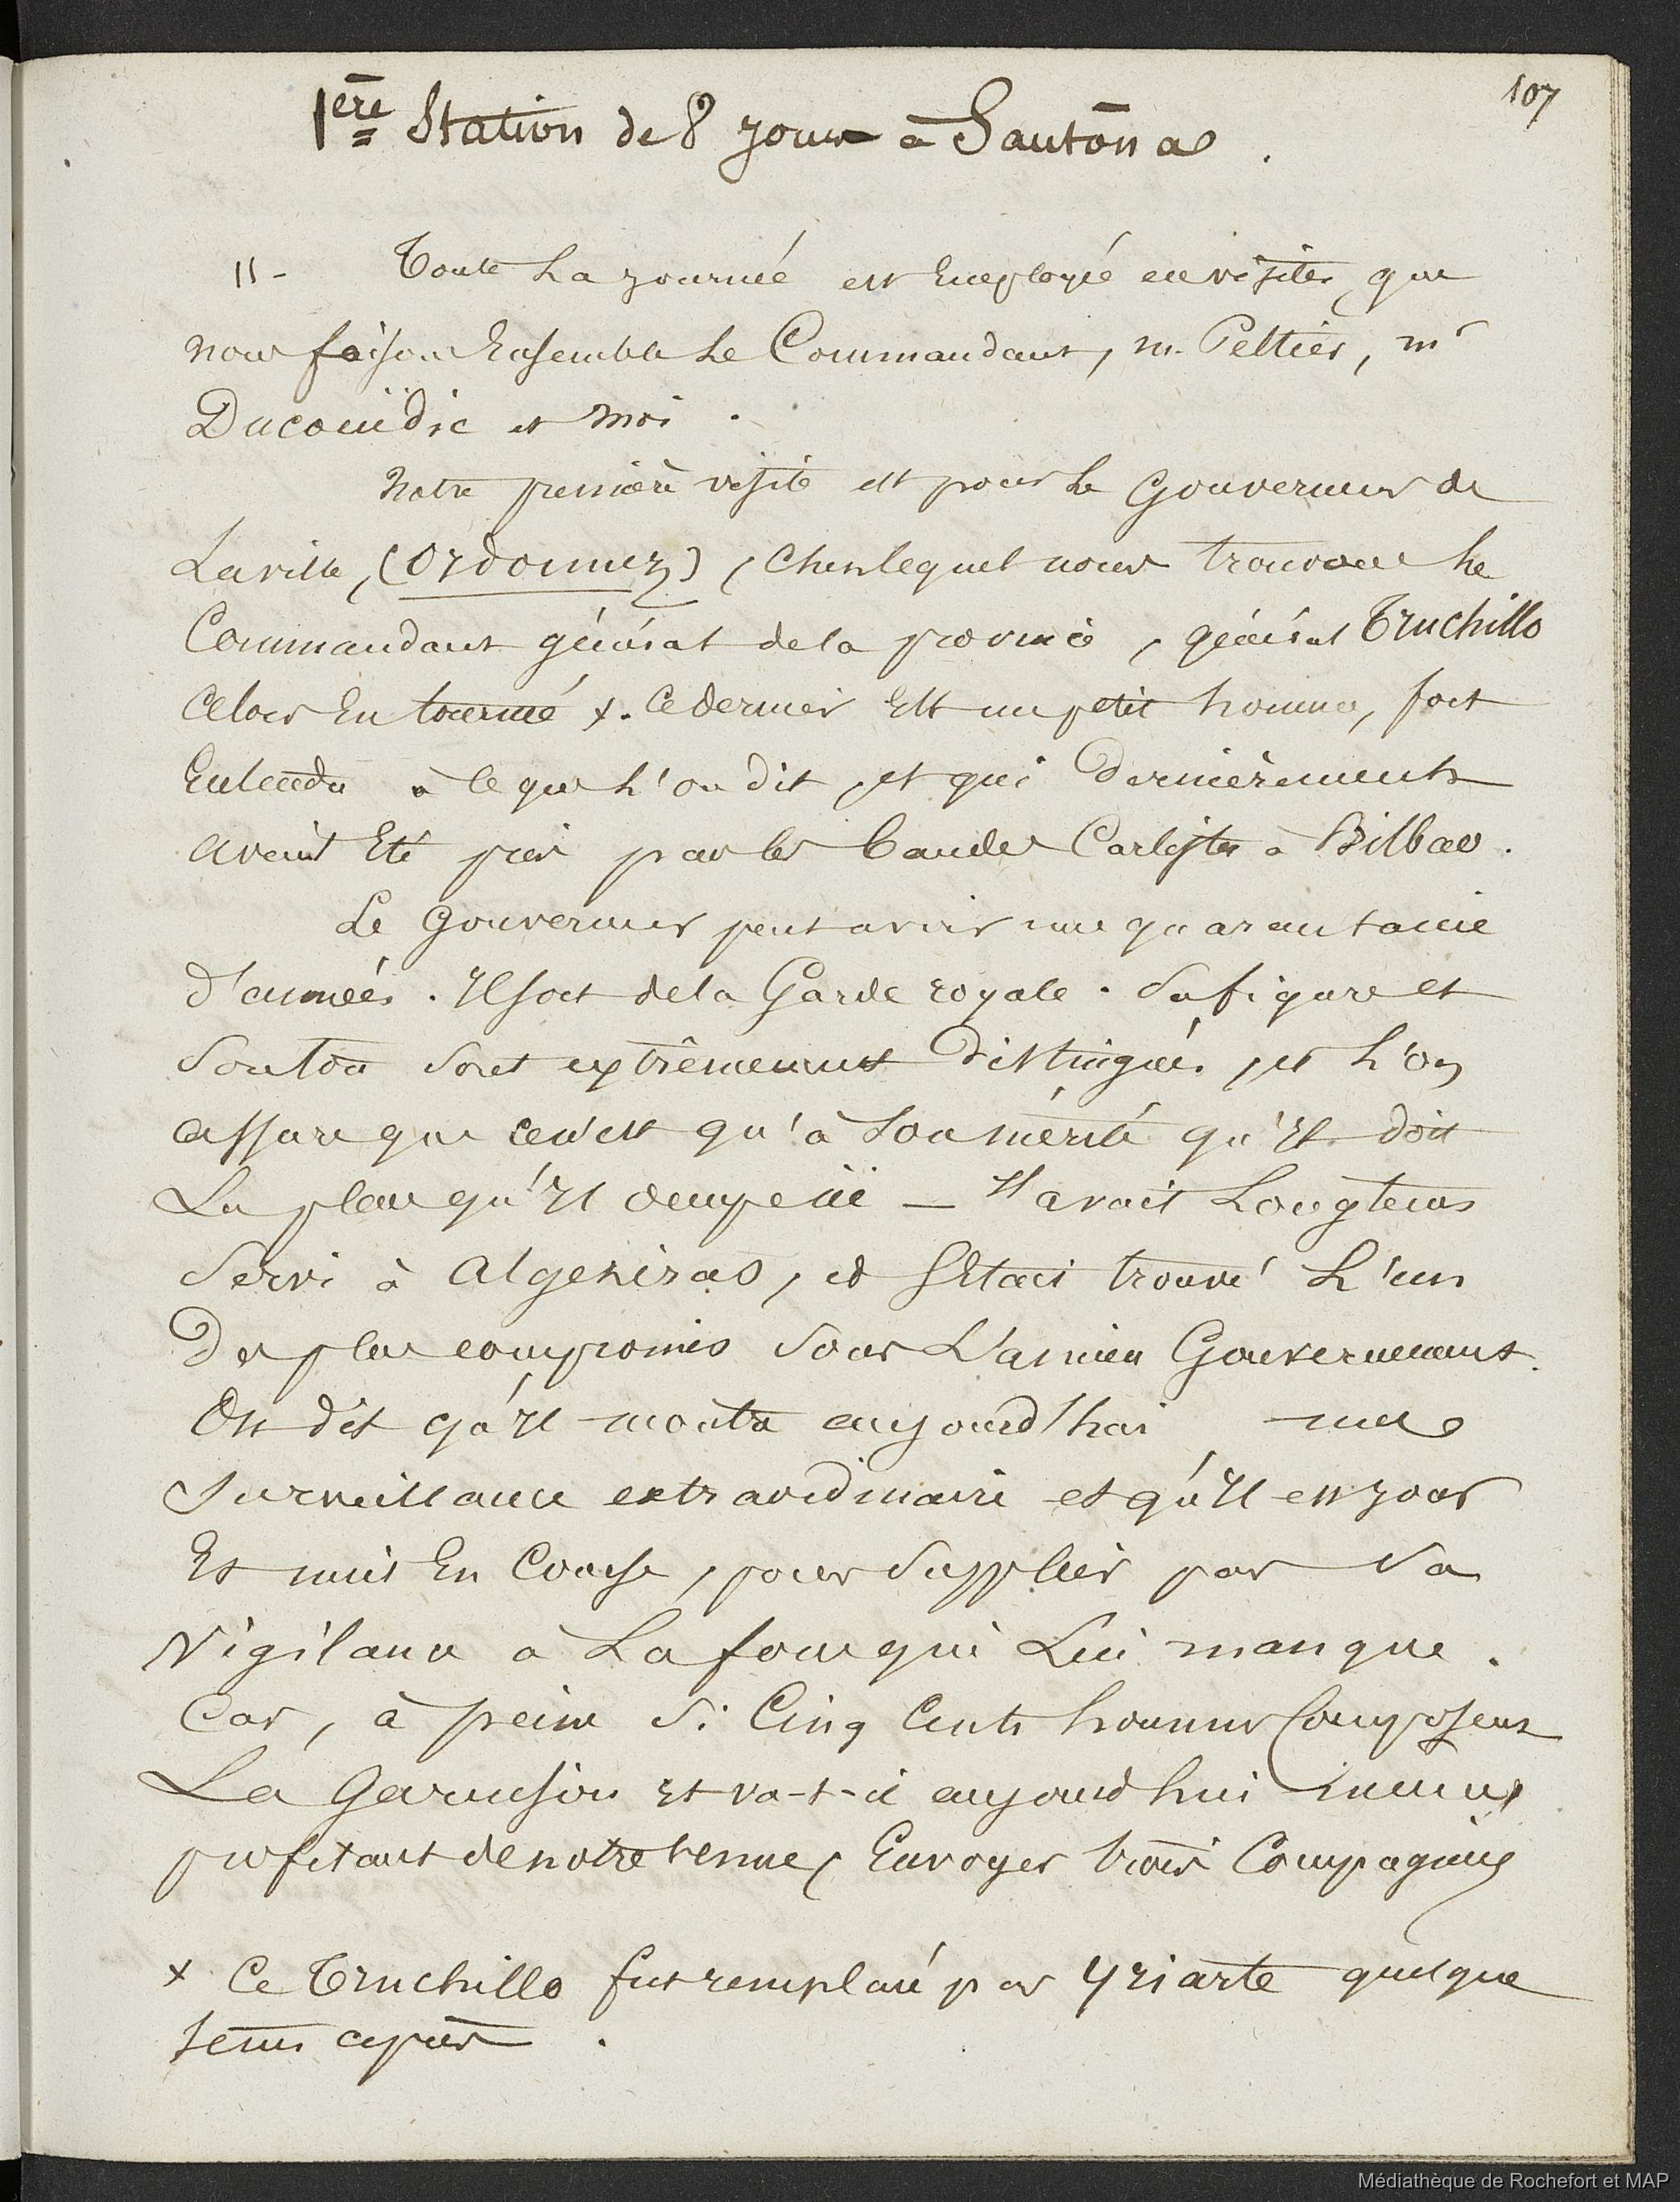 107
1ère Station de 8 jours à Santôna.
11 - Toute La journée est Employée en visites, que
nous faisons Ensemble Le Commandant, m. Peltier, mr
Ducouëdic et moi.
Notre première visite est pour Le Gouverneur de
La ville, (Ordonnez), chez lequel nous trouvons Le
Commandant général de la province, général Truchillo
alors En tournée x. Ce dernier Est un petit homme, fort
Entendu à ce que L'on dit, et qui Dernièrement
avait Eté pris par les bandes Carlistes à Bilbao.
Le Gouverneur peut avoir une quarantaine
d'années. Il sort de la Garde royale. Sa figure et
Son ton Sont extrêmement Distingués, et L'on
assure que ce n'est qu'à Son mérite qu'Il doit
La place qu'Il occupe ici — Il avait Longtems
Servi à Algeziras, et S'Etait trouvé L'un
Des plus compromis Sous L'ancien Gouvernement.
On dit qu'Il montre aujourd'hui une
Surveillance extraordinaire et qu'Il est jour
Et nuit En Course, pour Suppléer par Sa
Vigilance à La force qui Lui manque.
Car, à peine Si Cinq Cents hommes Composent
La Garnison Et va-t-il aujourd'hui même
profitant de notre venue, Envoyer trois Compagnies
x Ce Truchillo fut remplacé par Yriarte quelque
tems après.
Médiathèque de Rochefort et MAP